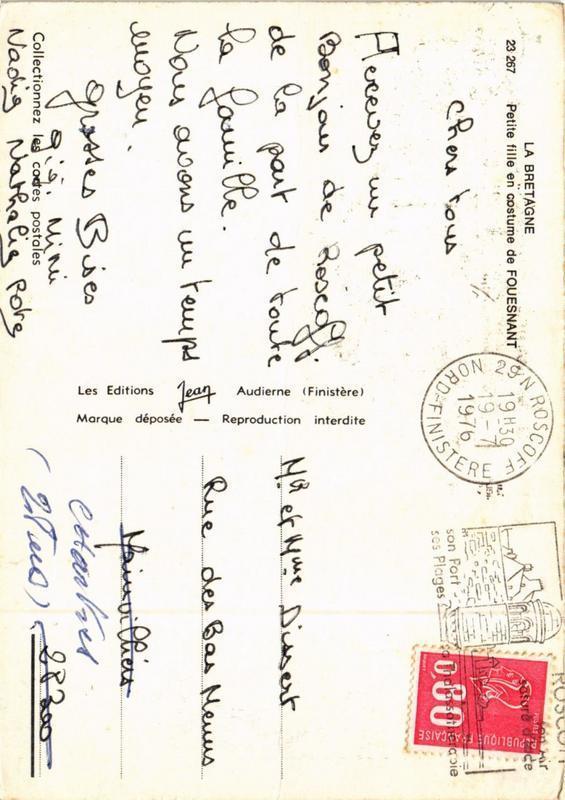 LA BRETAGNE
23 267 Petite fille en costume de FOUESNANT
Chers tous
Recevez un petit
Bonjour de Roscoff
de la part de toute
la famille.
Nous avons un temps
moyen.
grosses Bises
gigi Mimi
Nadine Nathalie
Collectionnez les cartes postales
Les Editions Jean Audierne (Finistère)
Marque déposée — Reproduction interdite
29 N ROSCOFF
19H30
19-7
1976
NORD-FINISTERE
son Port
ses Plages
son Air
saturé d'iode
sa Thalassothérapie
ROSCOFF
0,60
REPUBLIQUE FRANÇAISE
POSTES
Mr et Mme Dissert
Rue des Bas Menus
Mainvilliers
Chartres
28300